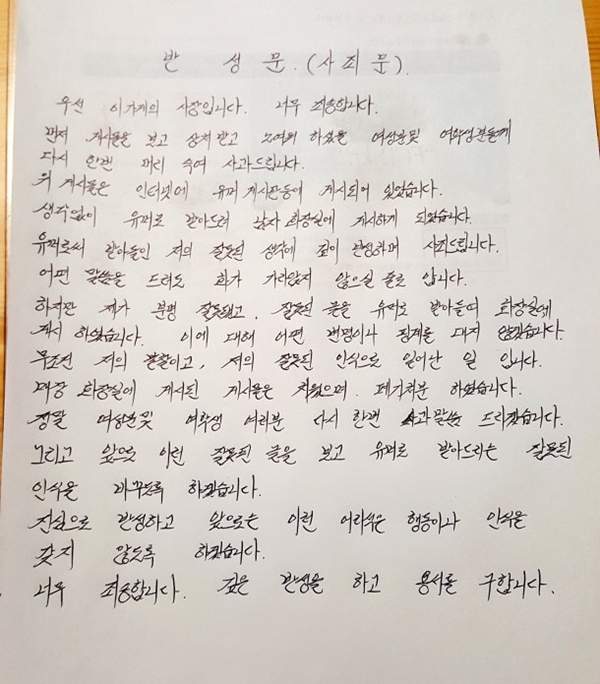 반 성 문. (사죄문).
우선 이가게의 사장입니다. 너무 죄송합니다.
먼저 게시물을 보고 상처받고 노여워 하셨을 여성분및 여학생분들께
다시 한번 머리 숙여 사과드립니다.
위 게시물은 인터넷에 유머 게시판등에 게시되어 있었습니다.
생각없이 유머로 받아드려 남자화장실에 게시하게 되었습니다.
유머로써 받아들인 저의 잘못된 생각에 깊이 반성하며 사죄드립니다.
어떤 말씀을 드려도 화가 가라앉지 않으실 줄로 압니다.
하지만 제가 분명 잘못됐고, 잘못된 글을 유머로 받아들여 화장실에
게시 하였습니다. 이에 대해 어떤 변명이나 핑계를 대지 않겠습니다.
무조건 저의 불찰이고, 저의 잘못된 인식으로 일어난 일 입니다.
매장 화장실에 게시된 게시물을 치웠으며. 폐기처분 하였습니다.
정말 여성분및 여학생 여러분 다시 한번 사과말씀 드리겠습니다.
그리고 앞으로 이런 잘못된 글을 보고 유머로 받아드리는 잘못된
인식을 바꾸도록 하겠습니다.
진심으로 반성하고 앞으로는 이런 어리석은 행동이나 인식을
갖지 않도록 하겠습니다.
너무 죄송합니다. 깊은 반성을 하고 용서를 구합니다.